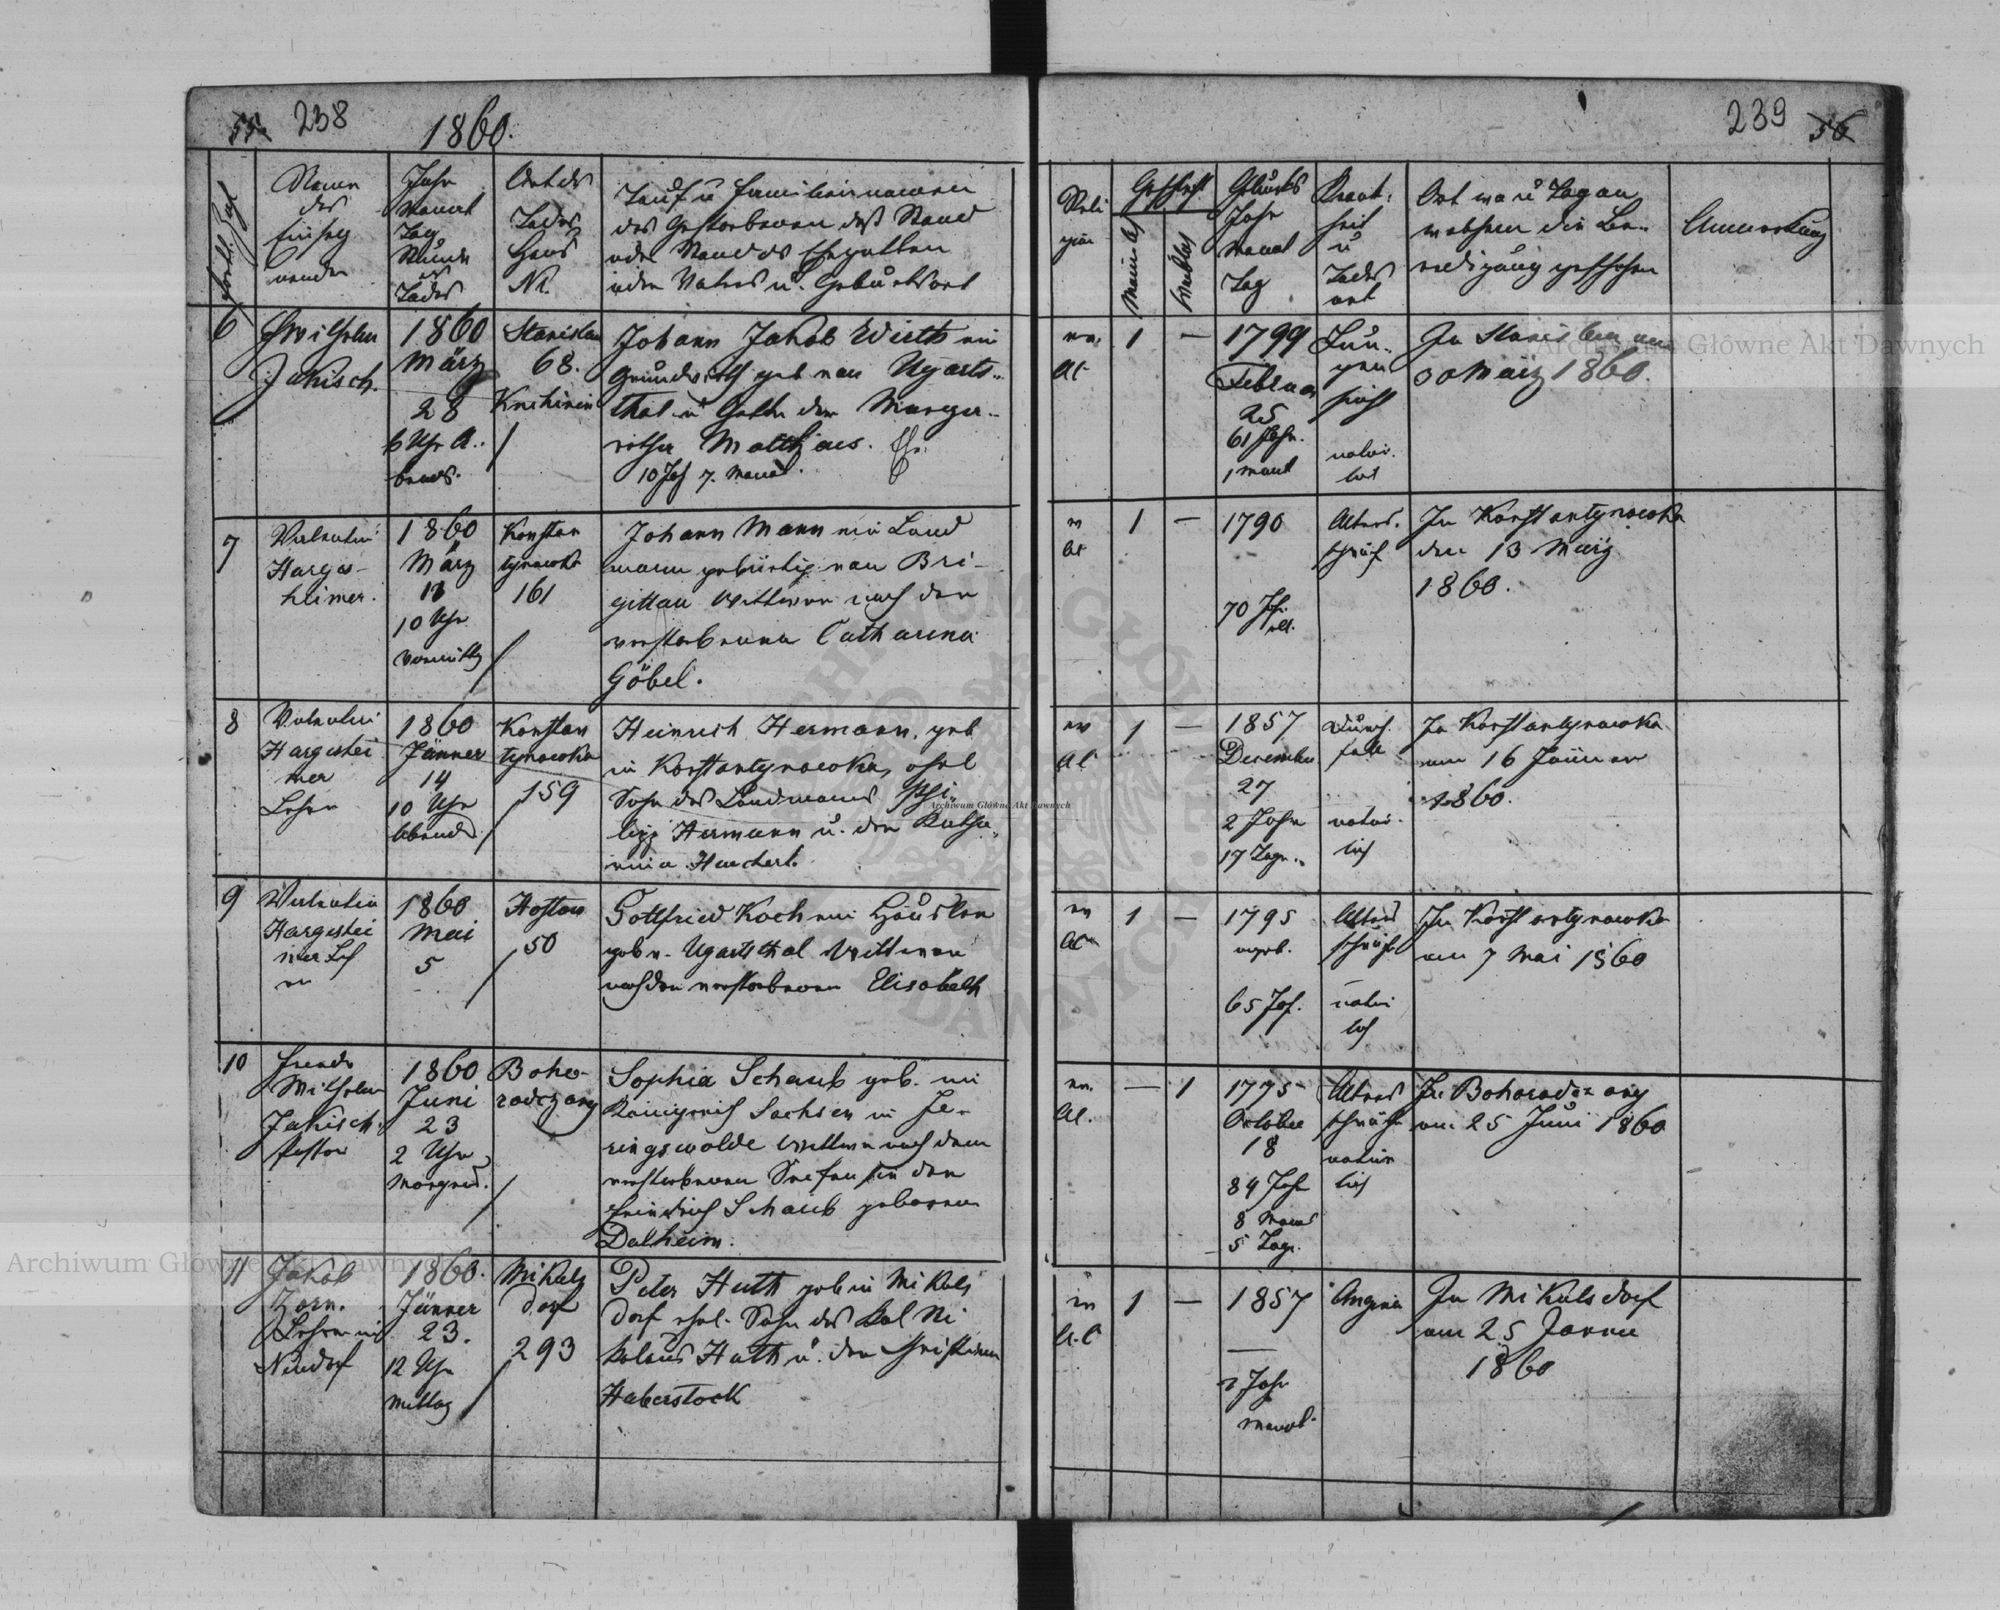 55. 238
1860.
239 56
Fortl. Zahl
Namen
des
Einseg
nenden
Jahr
Monat
Tag
Stunde
des
Todes
Ort des
Todes
Haus
Nr.
Tauf u Familiennamen
des Gestorbenen deß Stand
oder Stand des Ehegatten
oder Vaters u. Geburtsort
Reli
gion
Geschlecht
Männlich
Weiblich
Geburts
Jahr
Monat
Tag
Krank-
heit
u
Todes
art
Ort wo u Tag an
welchem die Be-
erdigung geschehen
Anmerkung
6
Wilhelm
Jakisch.
1860
März
28
6 Uhr A-
bends.
Stanislau
68.
Knihinin
Johann Jakob Wirth ein
Grundwirth geb von Ugarts-
thal u Gatte der Marga-
retha Matthaus. Ehe
10 Jah 7. Monat.
ev.
AC
1 —
1799
Februar
25
61 Jahr.
1 Monat
Lun-
gen
sucht
natür-
lich
In Stanislau am
30 März 1860.
7
Valentin
Harges-
heimer.
1860
März
11
10 Uhr
Vormittg
Konstan
tynowka
161
Johann Mann ein Land
mann gebürtig von Bri-
gittau Wittwer nach der
verstorbenen Catharina
Göbel.
ev
AC
1 —
1790
70 Jhr.
alt.
Alters-
schwäch
In Konstantynowka
den 13 März
1860.
8
Valentin
Hargeshei
mer
Lehrer
1860
Jänner
14
10 Uhr
Abends.
Konstan
tynowka
159
Heinrich Hermann, geb
in Konstantynowka, ehel
Sohn des Landmanns Phi-
lipp Hermann u. der Katha-
rina Huchert.
ev
AC
1 —
1857
December
27
2 Jahr
17 Tage.
Durch-
fall
natür-
lich
In Konstantynowka
am 16 Jänner
1860.
9
Valentin
Hargeshei
mer Leh
rer
1860
Mai
5
Hostow
50
Gottfried Koch ein Häusler
geb v. Ugartsthal Wittwer
nach der verstorbenen Elisabeth
ev
AC
1 —
1795
65 Jah.
Alters
schwäche
natür
lich
In Konstantynowka
am 7 Mai 1860
10
Wilhelm
Jakisch.
Pastor
1860
Juni
23
2 Uhr
Morgens.
Boho-
rodczany
Sophia Schaub geb. im
Königreich Sachsen in Ge-
ringswalde Wittwe nach dem
verstorbenen Seifensieder
Heinrich Schaub geborene
Dalheim.
ev.
AC.
— 1
1775
October
18
84 Jahr
8 Monat
5 Tage.
Alters
schwäche
natür
lich
In Bohorodczany
am 25 Juni 1860
11
Jakob
Horn.
Lehrer in
Neudorf
1860.
Jänner
23.
12 Uhr
Mittag
Mikuls
dorf
293
Peter Huth geb in Mikuls
dorf ehel. Sohn des Kol Ni
kolaus Huth u. der Christina
Haberstock
ev
A.C
1 —
1857
2 Jahr
Monat.
Angina
In Mikulsdorf
am 25 Janner
1860
Archiwum Główne Akt Dawnych
Archiwum Główne Akt Dawnych
Archiwum Główne Akt Dawnych